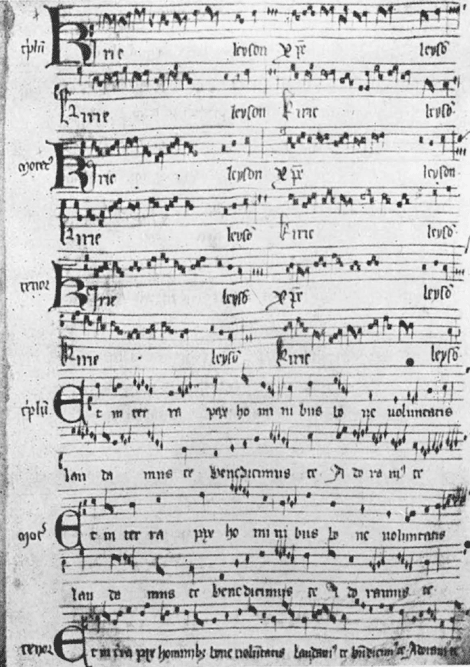 t'plū Kirie leyson xpē leysō
Kirie leyson Kirie leysō
motet' Kirie leyson xpē leysō
Kirie leysō Kirie leysō
tenor Kirie leysō xpē leysō
Kirie leysō Kirie leysō
t'plū Et in ter ra pax ho mi ni bus bo ne voluntatis
lau da mus te Benedicimus te A do ra m' te
mot' Et in ter ra pax ho mi ni bus bo ne voluntatis
lau da mus te benedicimus te A do ramus te
tenor Et in t'ra pax hominibꝫ bone volūtatis laudam' te bn̄dicim' te Adoram' te